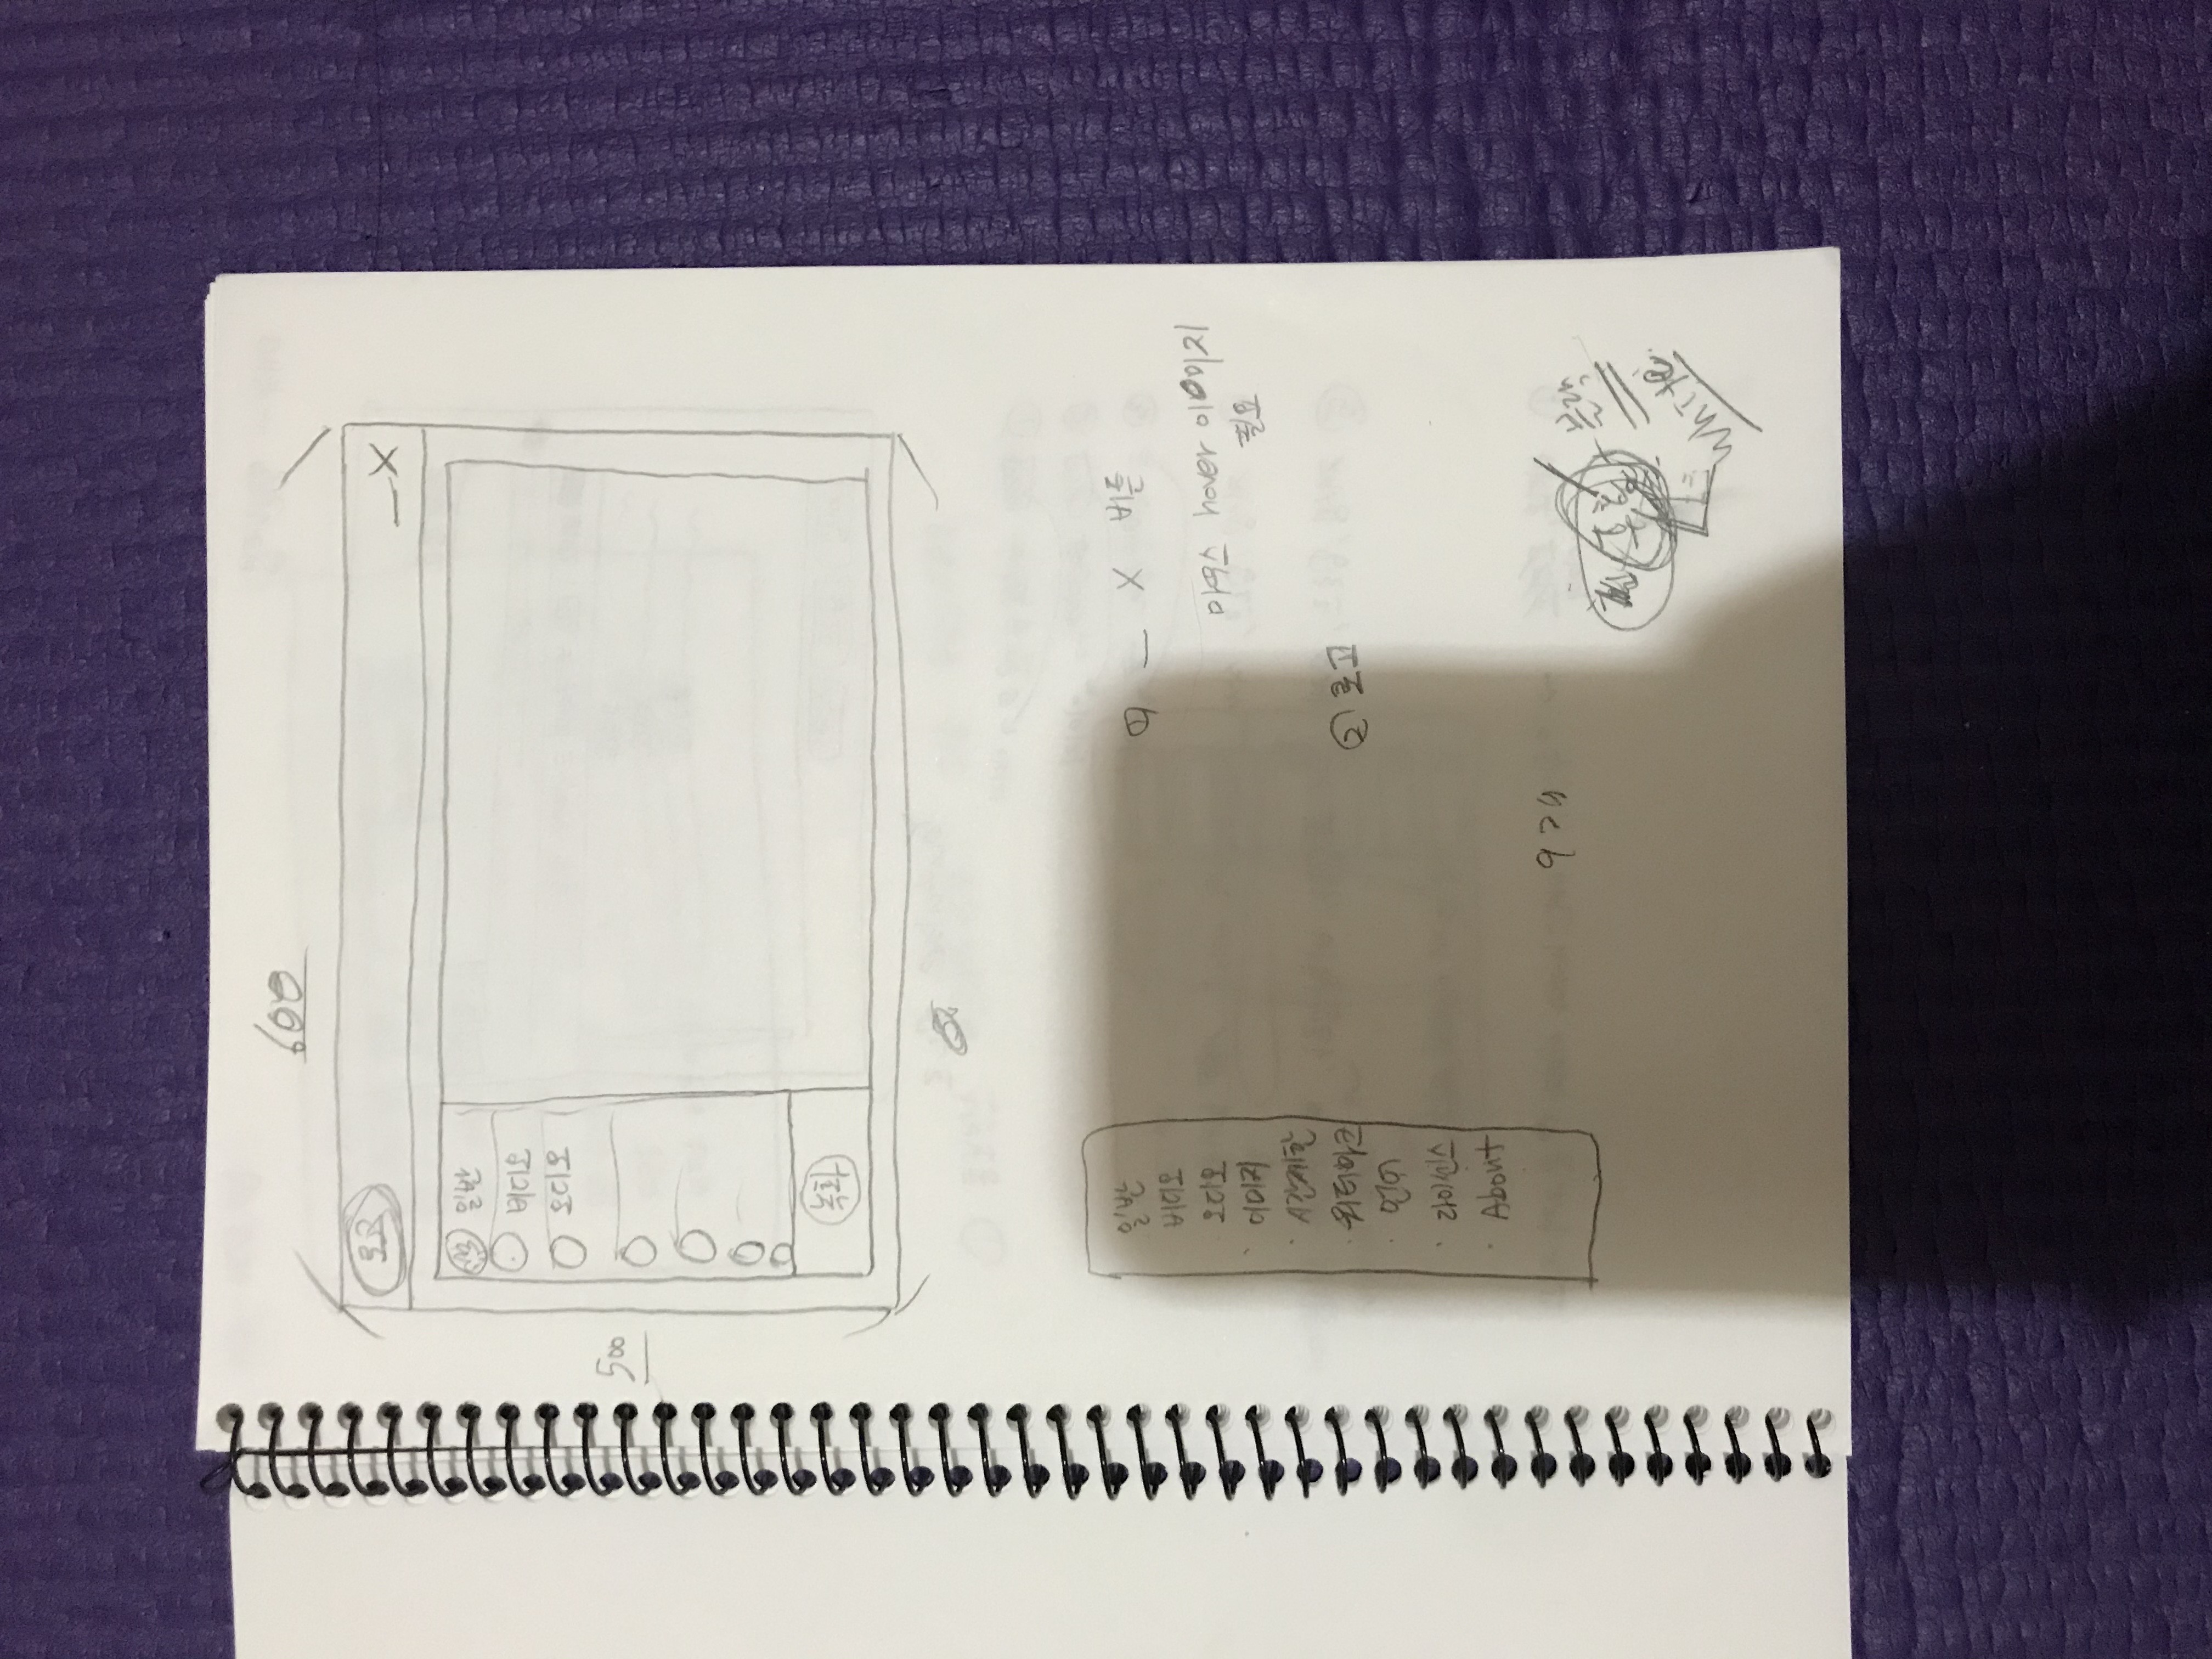 600
로고
_ X
일반
비디오
오디오
500
녹화
일반
비디오
오디오
이미지
시간제한
워터마크
언어
라이센스
About
9개
① _ X 버튼
마우스 hover 이미지
필요
② 로고
블랙
White